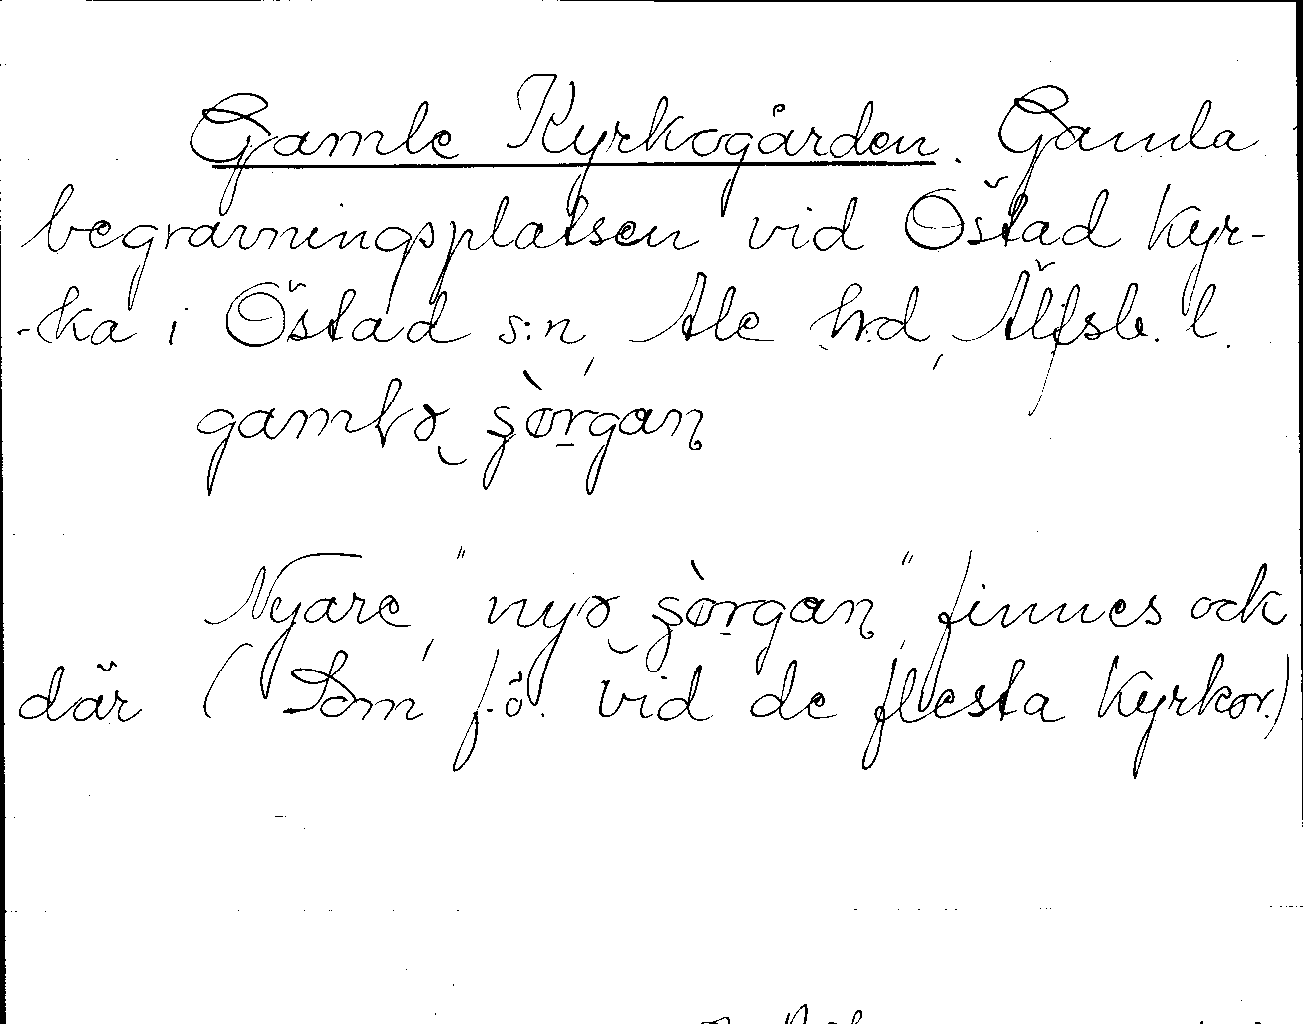 Gamle Kyrkogården. Gamla
begravningsplatsen vid Östad kyr-
-ka i Östad s:n, Ale hd, Älfsb. l.
gamlə
Nyare, "nyə finnes ock
där (Som f.ö. vid de flesta kyrkor.)